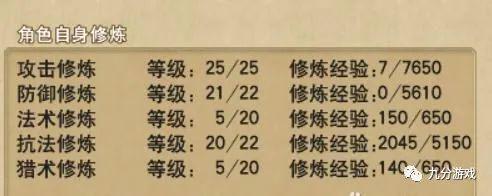 角色自身修炼
攻击修炼 等级: 25/25 修炼经验:7/7650
防御修炼 等级: 21/22 修炼经验:0/5610
法术修炼 等级: 5/20 修炼经验:150/650
抗法修炼 等级: 20/22 修炼经验:2045/5150
猎术修炼 等级: 5/20 修炼经验:140/650
九分游戏